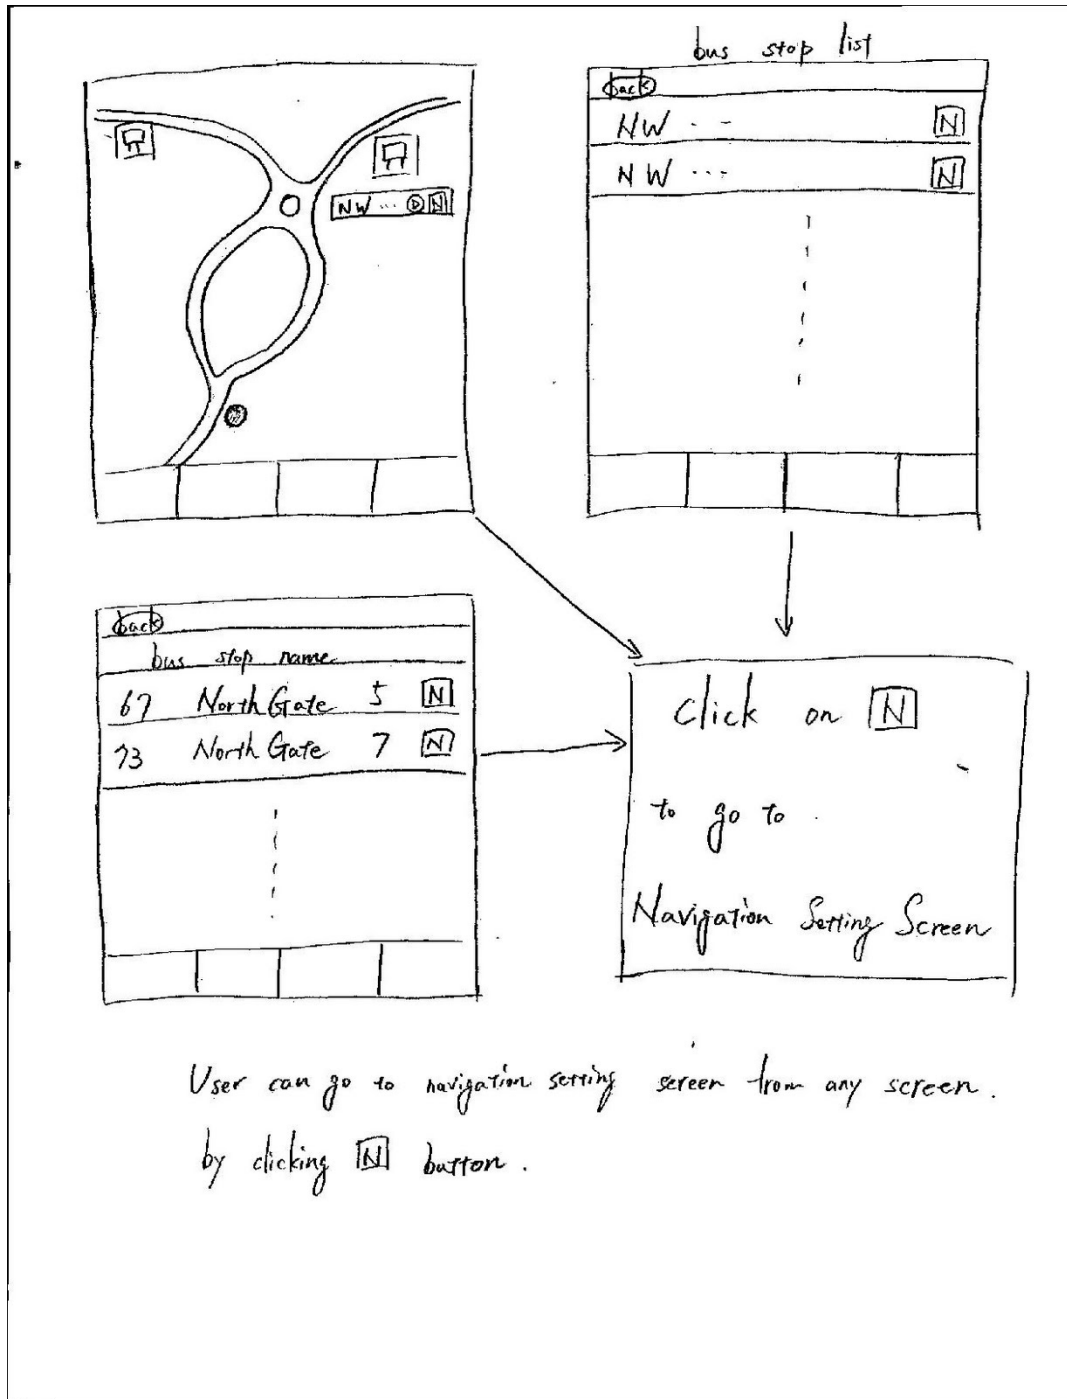 NW ... N
bus stop list
back
NW ... N
NW ... N
back
bus stop name
67 North Gate 5 N
73 North Gate 7 N
Click on N
to go to
Navigation Setting Screen
User can go to navigation setting screen from any screen.
by clicking N button.